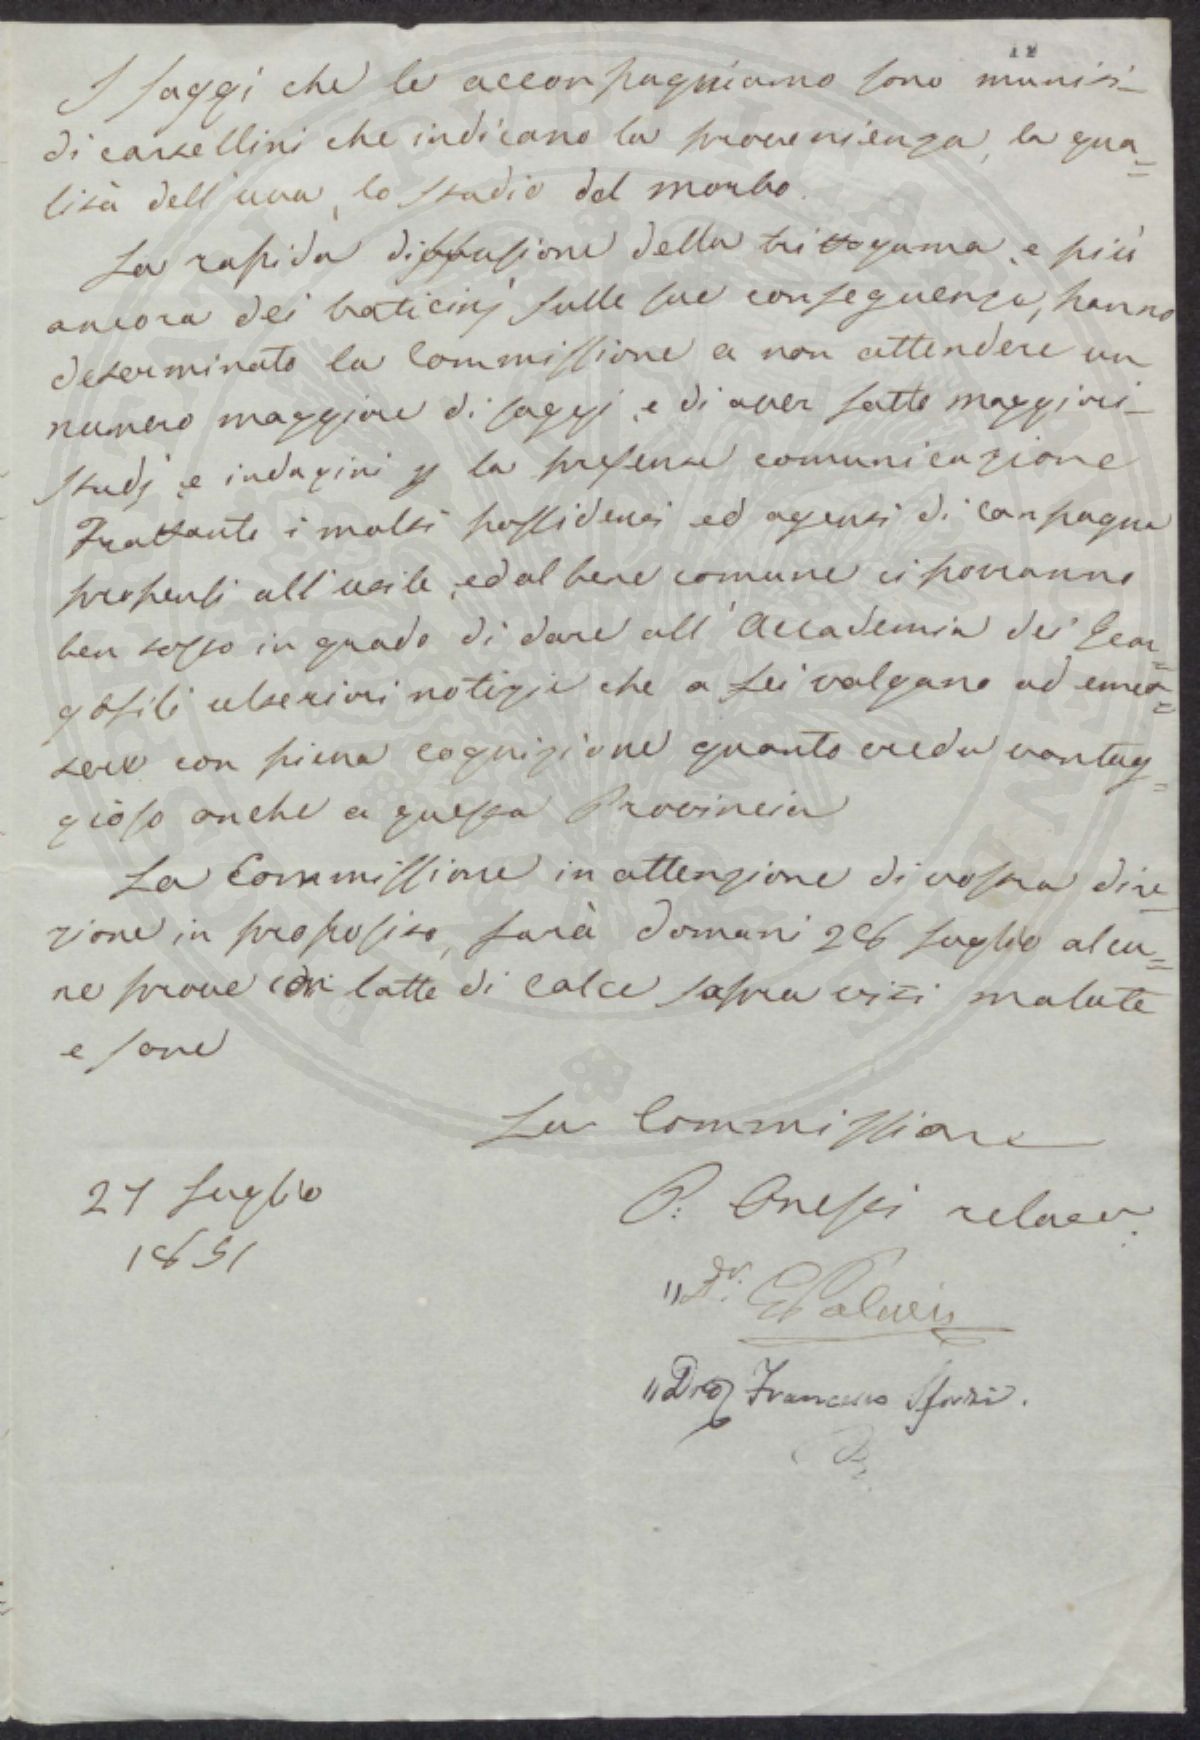 I saggi che le accompagniamo sono muniti
di cartellini che indicano la provenienza, la qua=
lità dell'uva, lo stadio del morbo.
La rapida diffusione della crittogama, e più
ancora dei vaticinj sulle sue conseguenze, hanno
determinato la Commissione a non attendere un
numero maggiore di saggj, e di aver fatto maggiori
studj, e indagini p la presente comunicazione
Frattanto i molti possidenti ed agenti di campagna
propensi all'utile, ed al bene comune ci porranno
ben tosto in grado di dare all'Accademia dei Geor=
gofili ulteriori notizie che a Lei valgano ad emet=
tere con piena cognizione quanto creda vantag=
gioso anche a questa Provincia
La Commissione in attenzione di vostra dire
zione in proposito, farà domani 28 Luglio alcu=
ne prove con latte di calce sopra viti malate
e sane
La Commissione
27 Luglio
1851
P. Onesti relator.
" Dr.
" Francesco Sforzi.